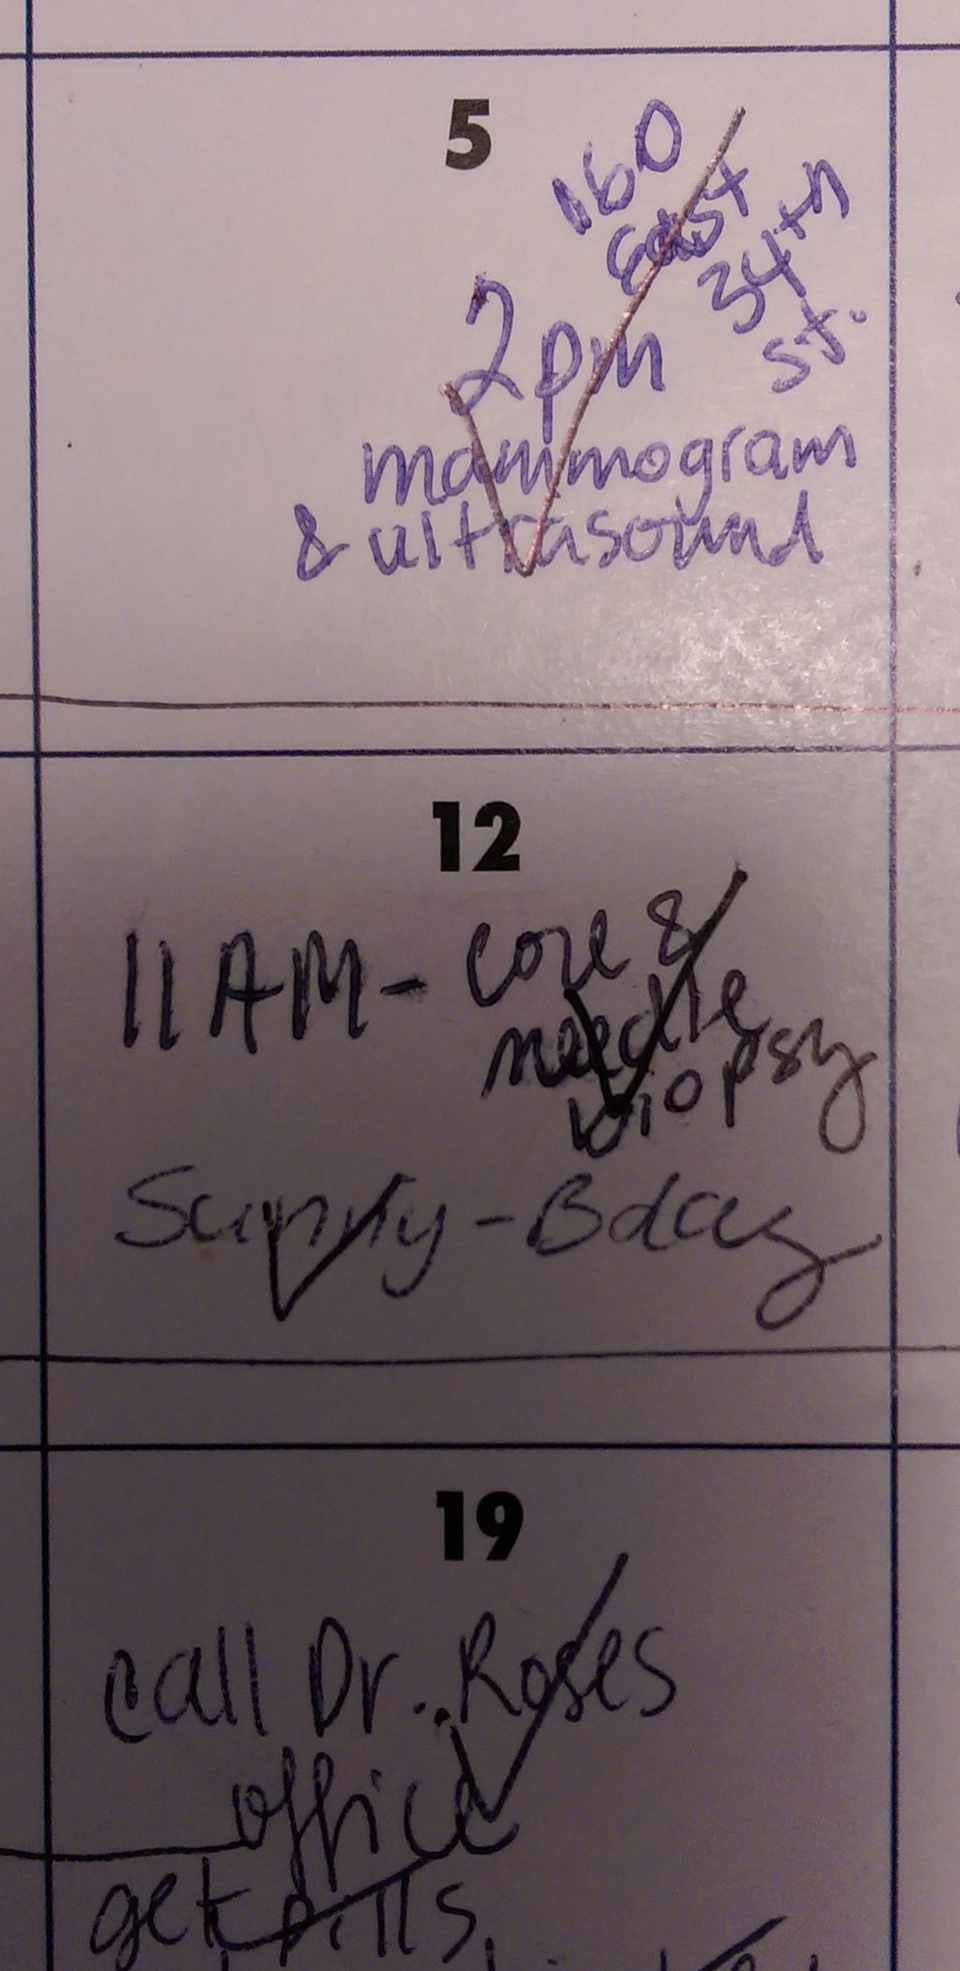 5
160
East
34th
St.
2pm
mammogram
& ultrasound
12
11 AM - core &
needle
biopsy
- Bday
19
call Dr. Roses
office
get pills